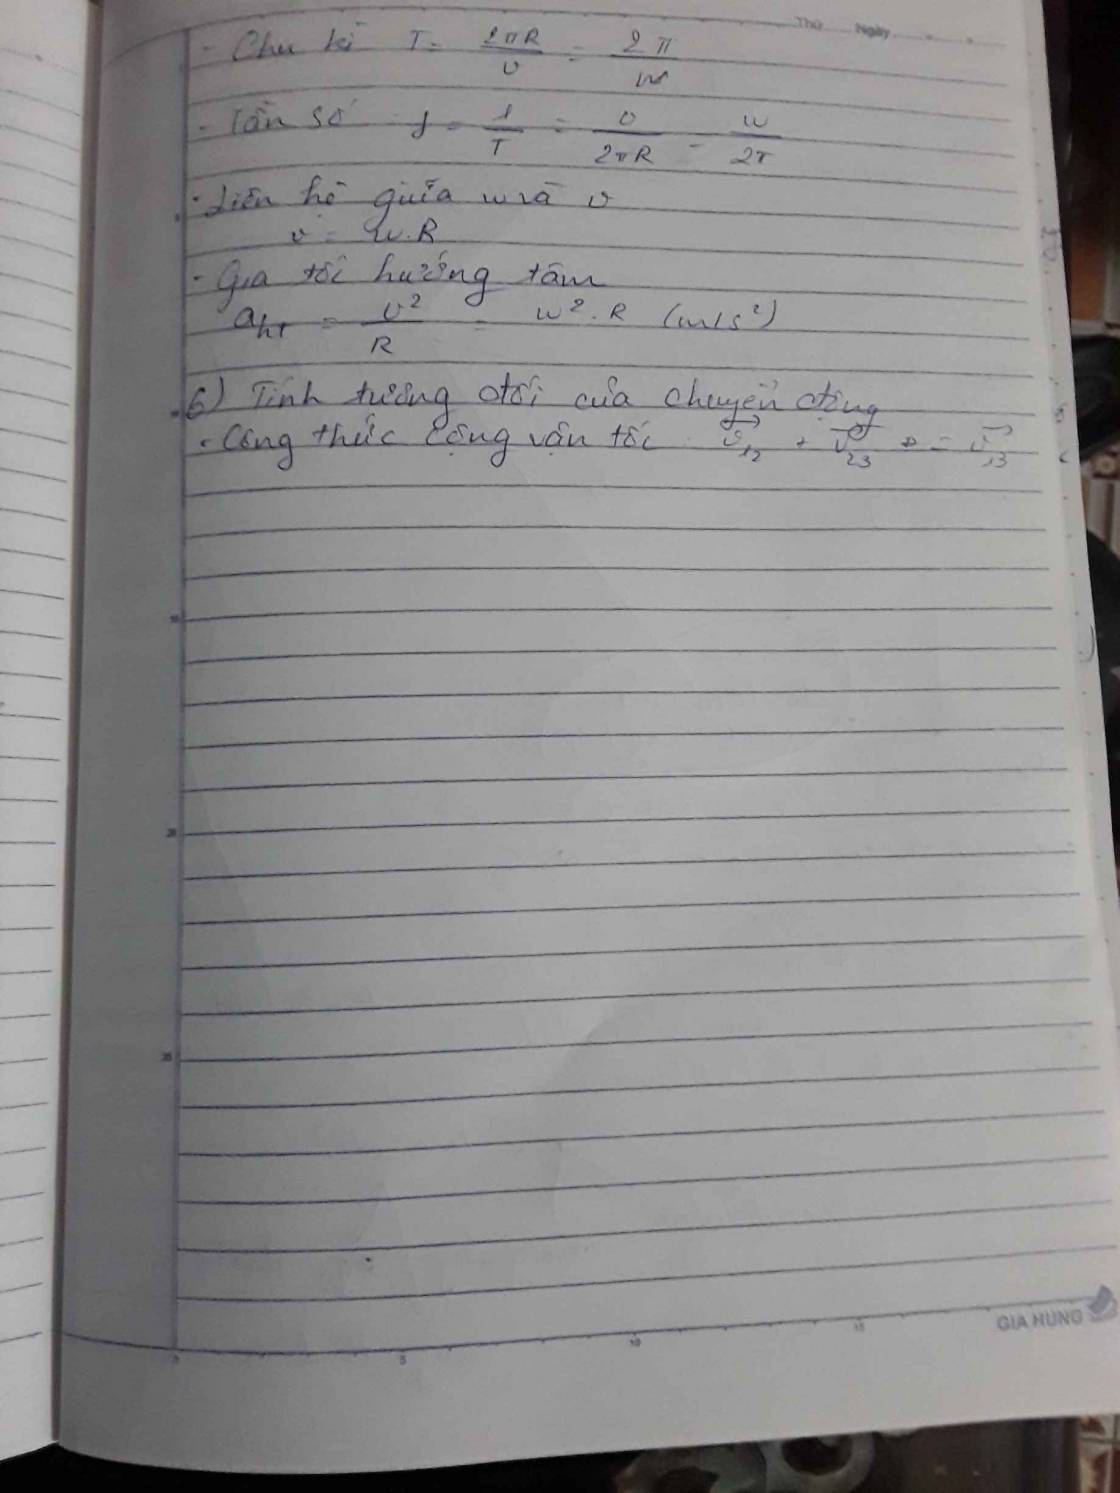 Thứ Ngày
- Chu kì T = 2πR/v = 2π/w
- Tần số f = 1/T = v/2πR = w/2π
- Liên hệ giữa w và v
v = w.R
- Gia tốc hướng tâm
aht = v²/R = w².R (m/s²)
6) Tính tương đối của chuyển động
• Công thức cộng vận tốc v⃗12 + v⃗23 = v⃗13
GIA HUNG